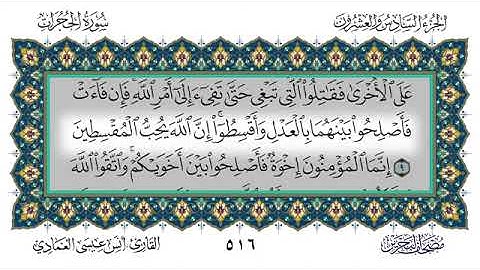 الجزء السادس والعشرون
سورة الحجرات
عَلَى ٱلْأُخْرَىٰ فَقَٰتِلُوا۟ ٱلَّتِى تَبْغِى حَتَّىٰ تَفِىٓءَ إِلَىٰٓ أَمْرِ ٱللَّهِ ۚ فَإِن فَآءَتْ
فَأَصْلِحُوا۟ بَيْنَهُمَا بِٱلْعَدْلِ وَأَقْسِطُوٓا۟ ۖ إِنَّ ٱللَّهَ يُحِبُّ ٱلْمُقْسِطِينَ
٩ إِنَّمَا ٱلْمُؤْمِنُونَ إِخْوَةٌ فَأَصْلِحُوا۟ بَيْنَ أَخَوَيْكُمْ ۚ وَٱتَّقُوا۟ ٱللَّهَ
٥١٦
القارئ أنس عيسى العمادي